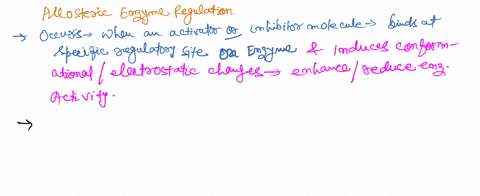 Allosteric Enzyme Regulation
→ Occurs → when an activator or inhibitor molecule → binds at
specific regulatory site on Enzyme & induces conform-
ational / electrostatic changes → enhance / reduce enz.
Activity.
→